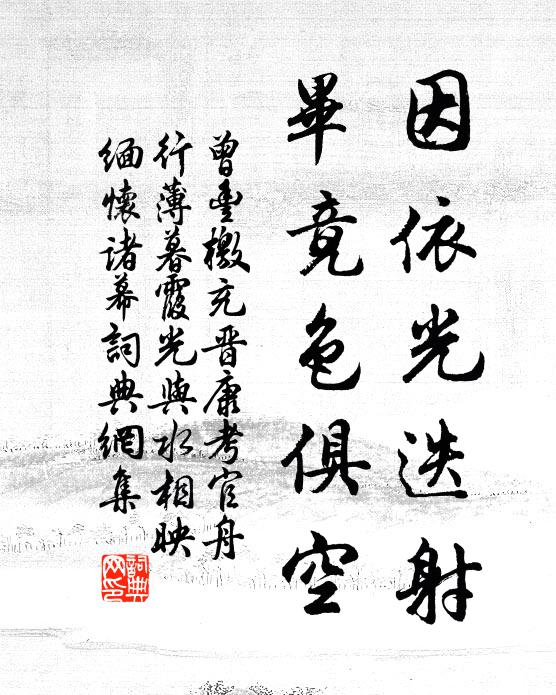 因依光迭射
畢竟色俱空
曾豐檄充晋康考官舟
行薄暮霞光與水相映
緬懷諸幕詞典網集
詞典
网印